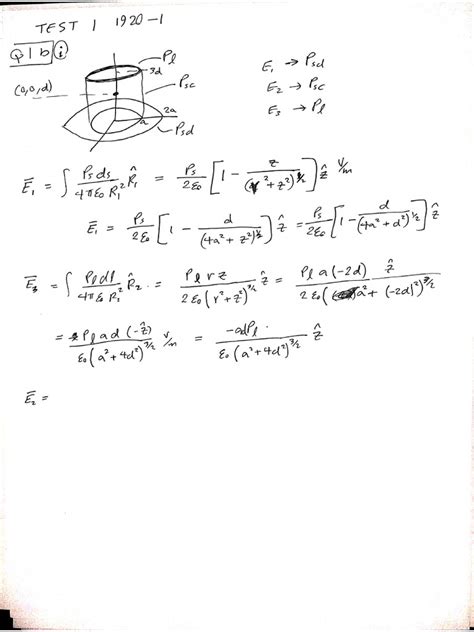 TEST 1 1920-1
Q1b (i)
Pl
3d
(0,0,d)
Psc
2a
a
Psd
E1 → Psd
E2 → Psc
E3 → Pl
Ē1 = ∫ Ps ds / 4πε0 R1² R̂1 = Ps / 2ε0 [ 1 − z / (r² + z²)^½ ] ẑ V/m
Ē1 = Ps / 2ε0 [ 1 − d / (4a² + z²)^½ ] ẑ = Ps / 2ε0 [ 1 − d / (4a² + d²)^½ ] ẑ
Ē3 = ∫ Pl dl / 4πε0 R1² R̂2 = Pl r z / 2ε0 (r² + z²)^3/2 ẑ = Pl a (−2d) / 2ε0 (a² + (−2d)²)^3/2 ẑ
= Pl a d (−ẑ) / ε0 (a² + 4d²)^3/2 V/m = −adPl / ε0 (a² + 4d²)^3/2 ẑ
Ē2 =